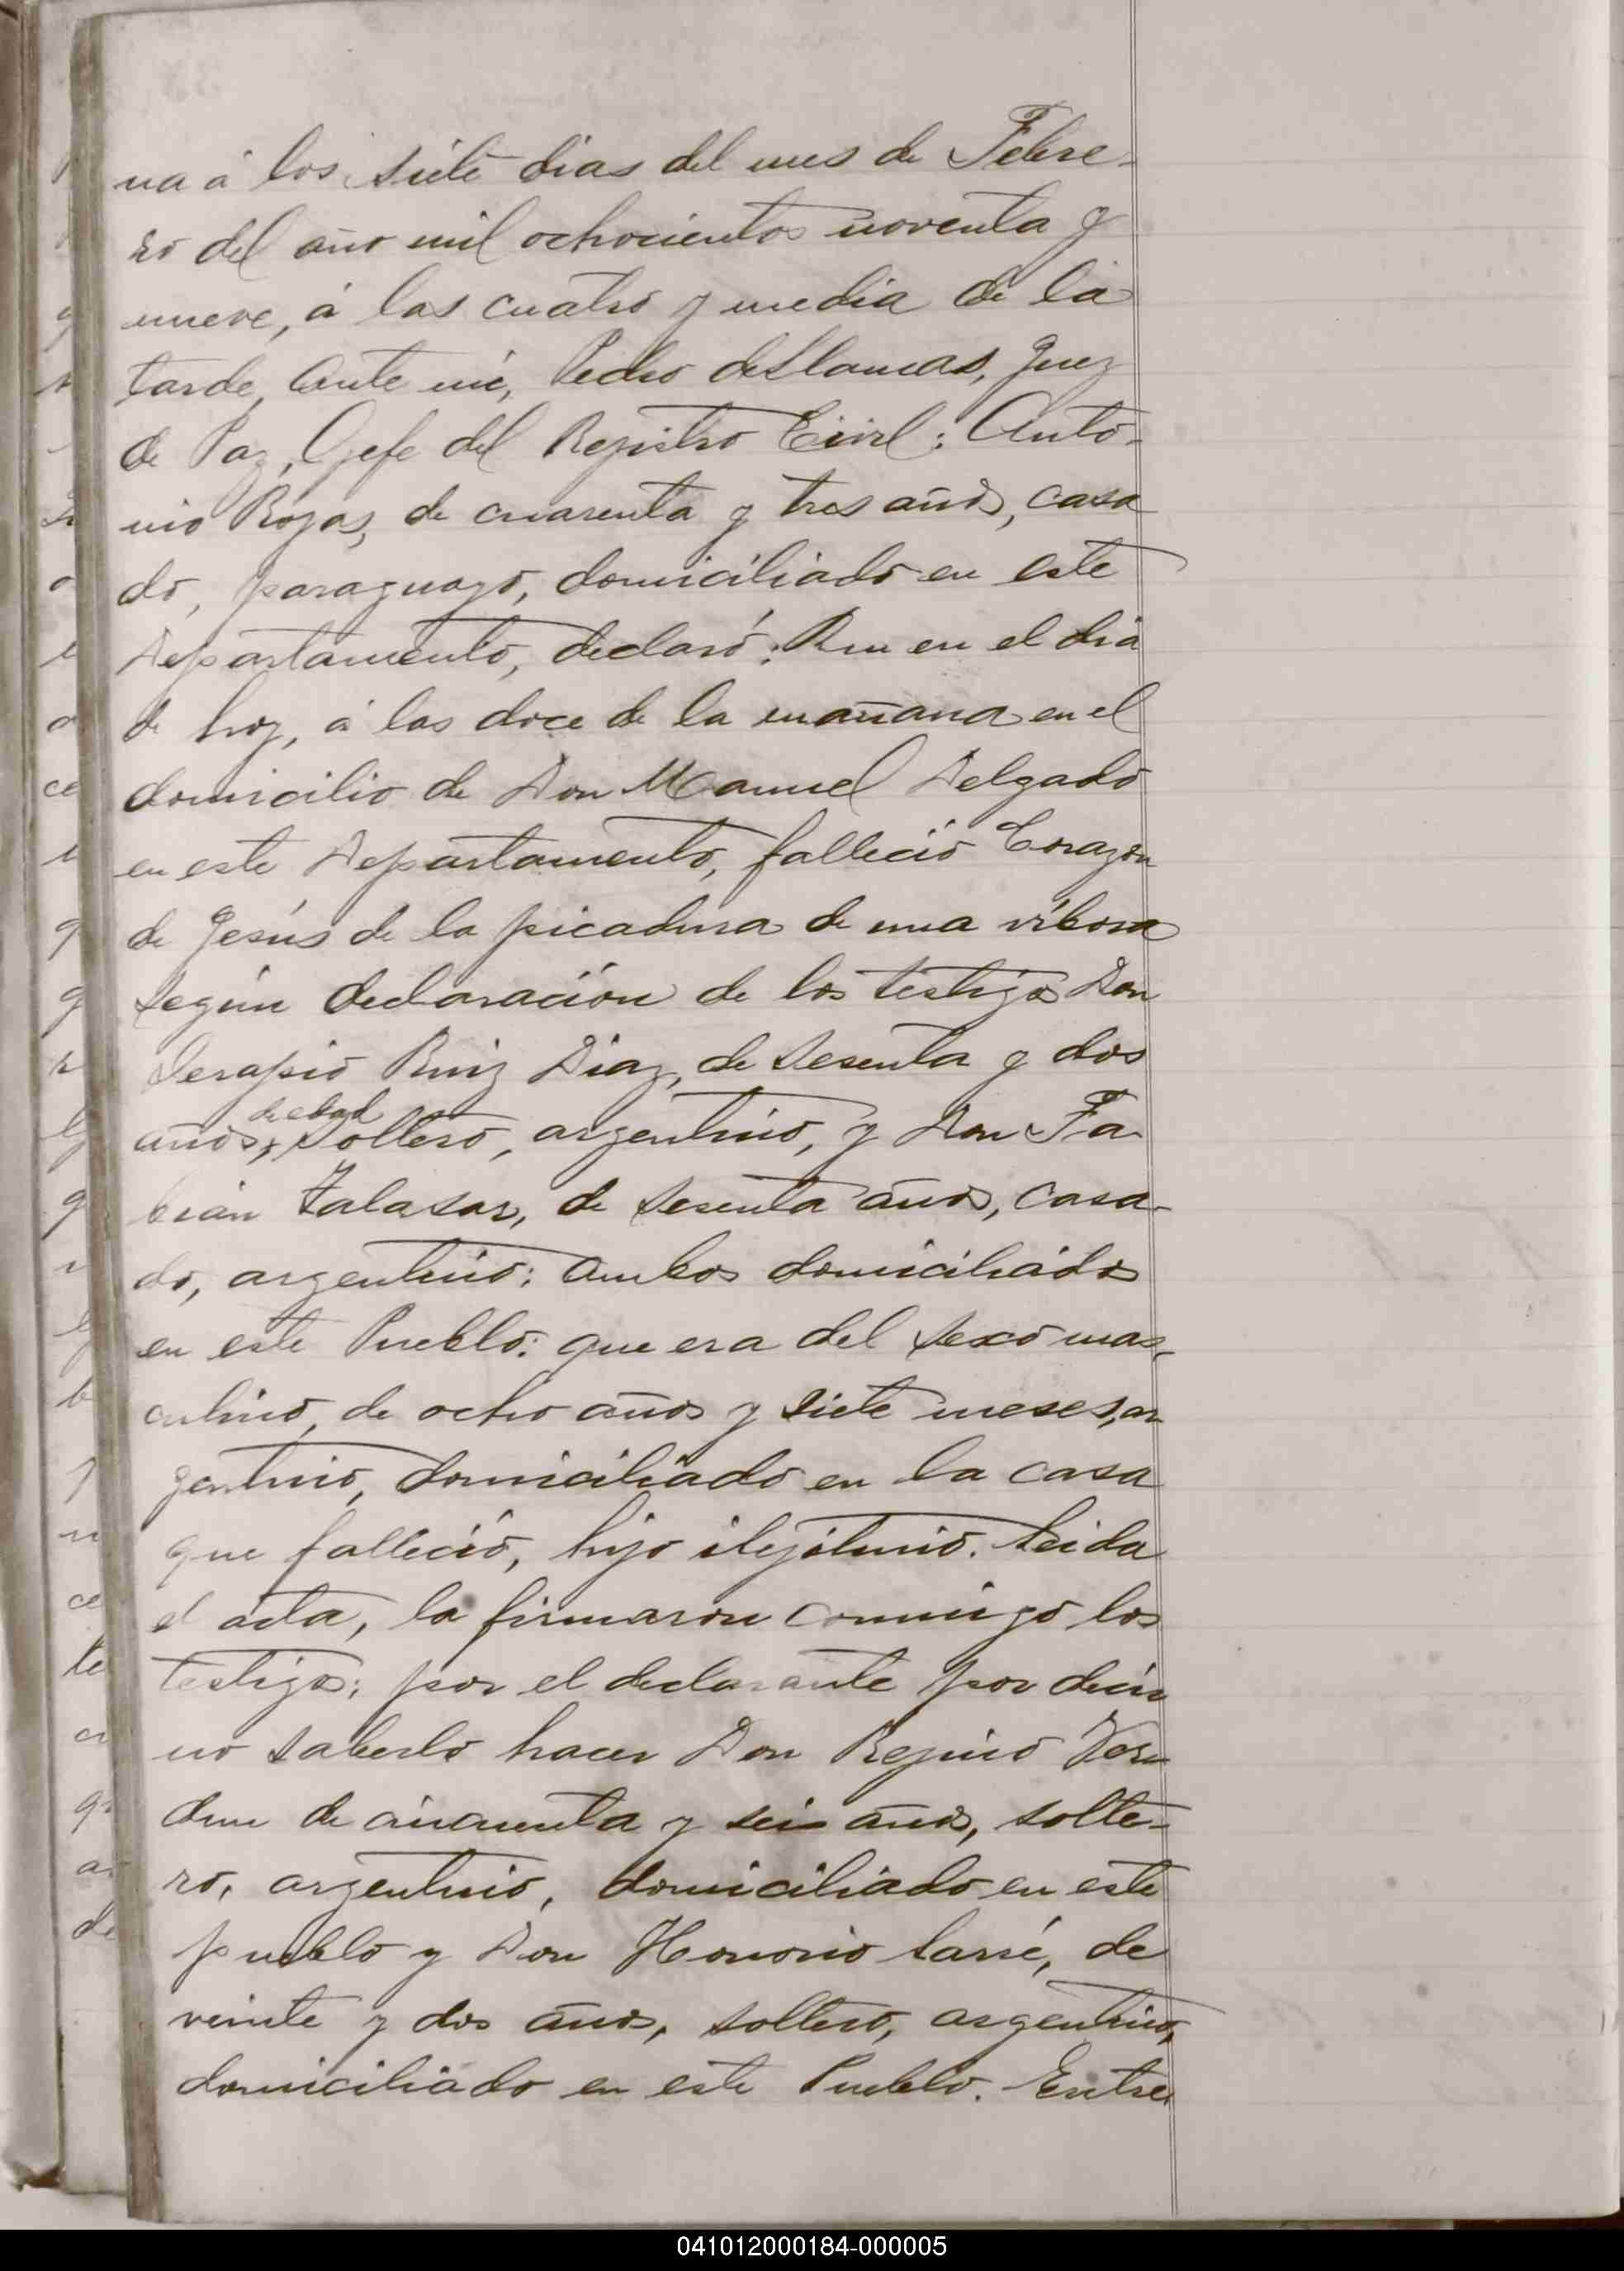 na á los siete dias del mes de Febre-
ro del año mil ochocientos noventa y
nueve, á las cuatro y media de la
tarde, ante mi, Pedro deLlamas, Juez
de Paz, Gefe del Registro Civil: Anto-
nio Rojas, de cuarenta y tres años, casa
do, paraguayo, domiciliado en este
Departamento, declaró: Que en el dia
de hoy, á las doce de la mañana en el
domicilio de Don Manuel Delgado
en este Departamento, falleció Corazon
de Jesús de la picadura de una víbora
según declaración de los testigos Don
Serapio Ruiz Diaz, de sesenta y dos
de edad
años, soltero, argentino, y Don Fa
bian Zalasar, de sesenta años, casa-
do, argentino: ambos domiciliados
en este Pueblo: que era del sexo mas-
culino, de ocho años y siete meses, ar
gentino, domiciliado en la casa
que falleció, hijo ilejitimo. Leida
el acta, la firmaron conmigo los
testigos; por el declarante por decir
no saberlo hacer Don Regino Ver
dun de cincuenta y seis años, solte-
ro, argentino, domiciliado en este
pueblo y Don Honorio Larré, de
veinte y dos años, soltero, argentino,
domiciliado en este Pueblo. Entre
041012000184-000005